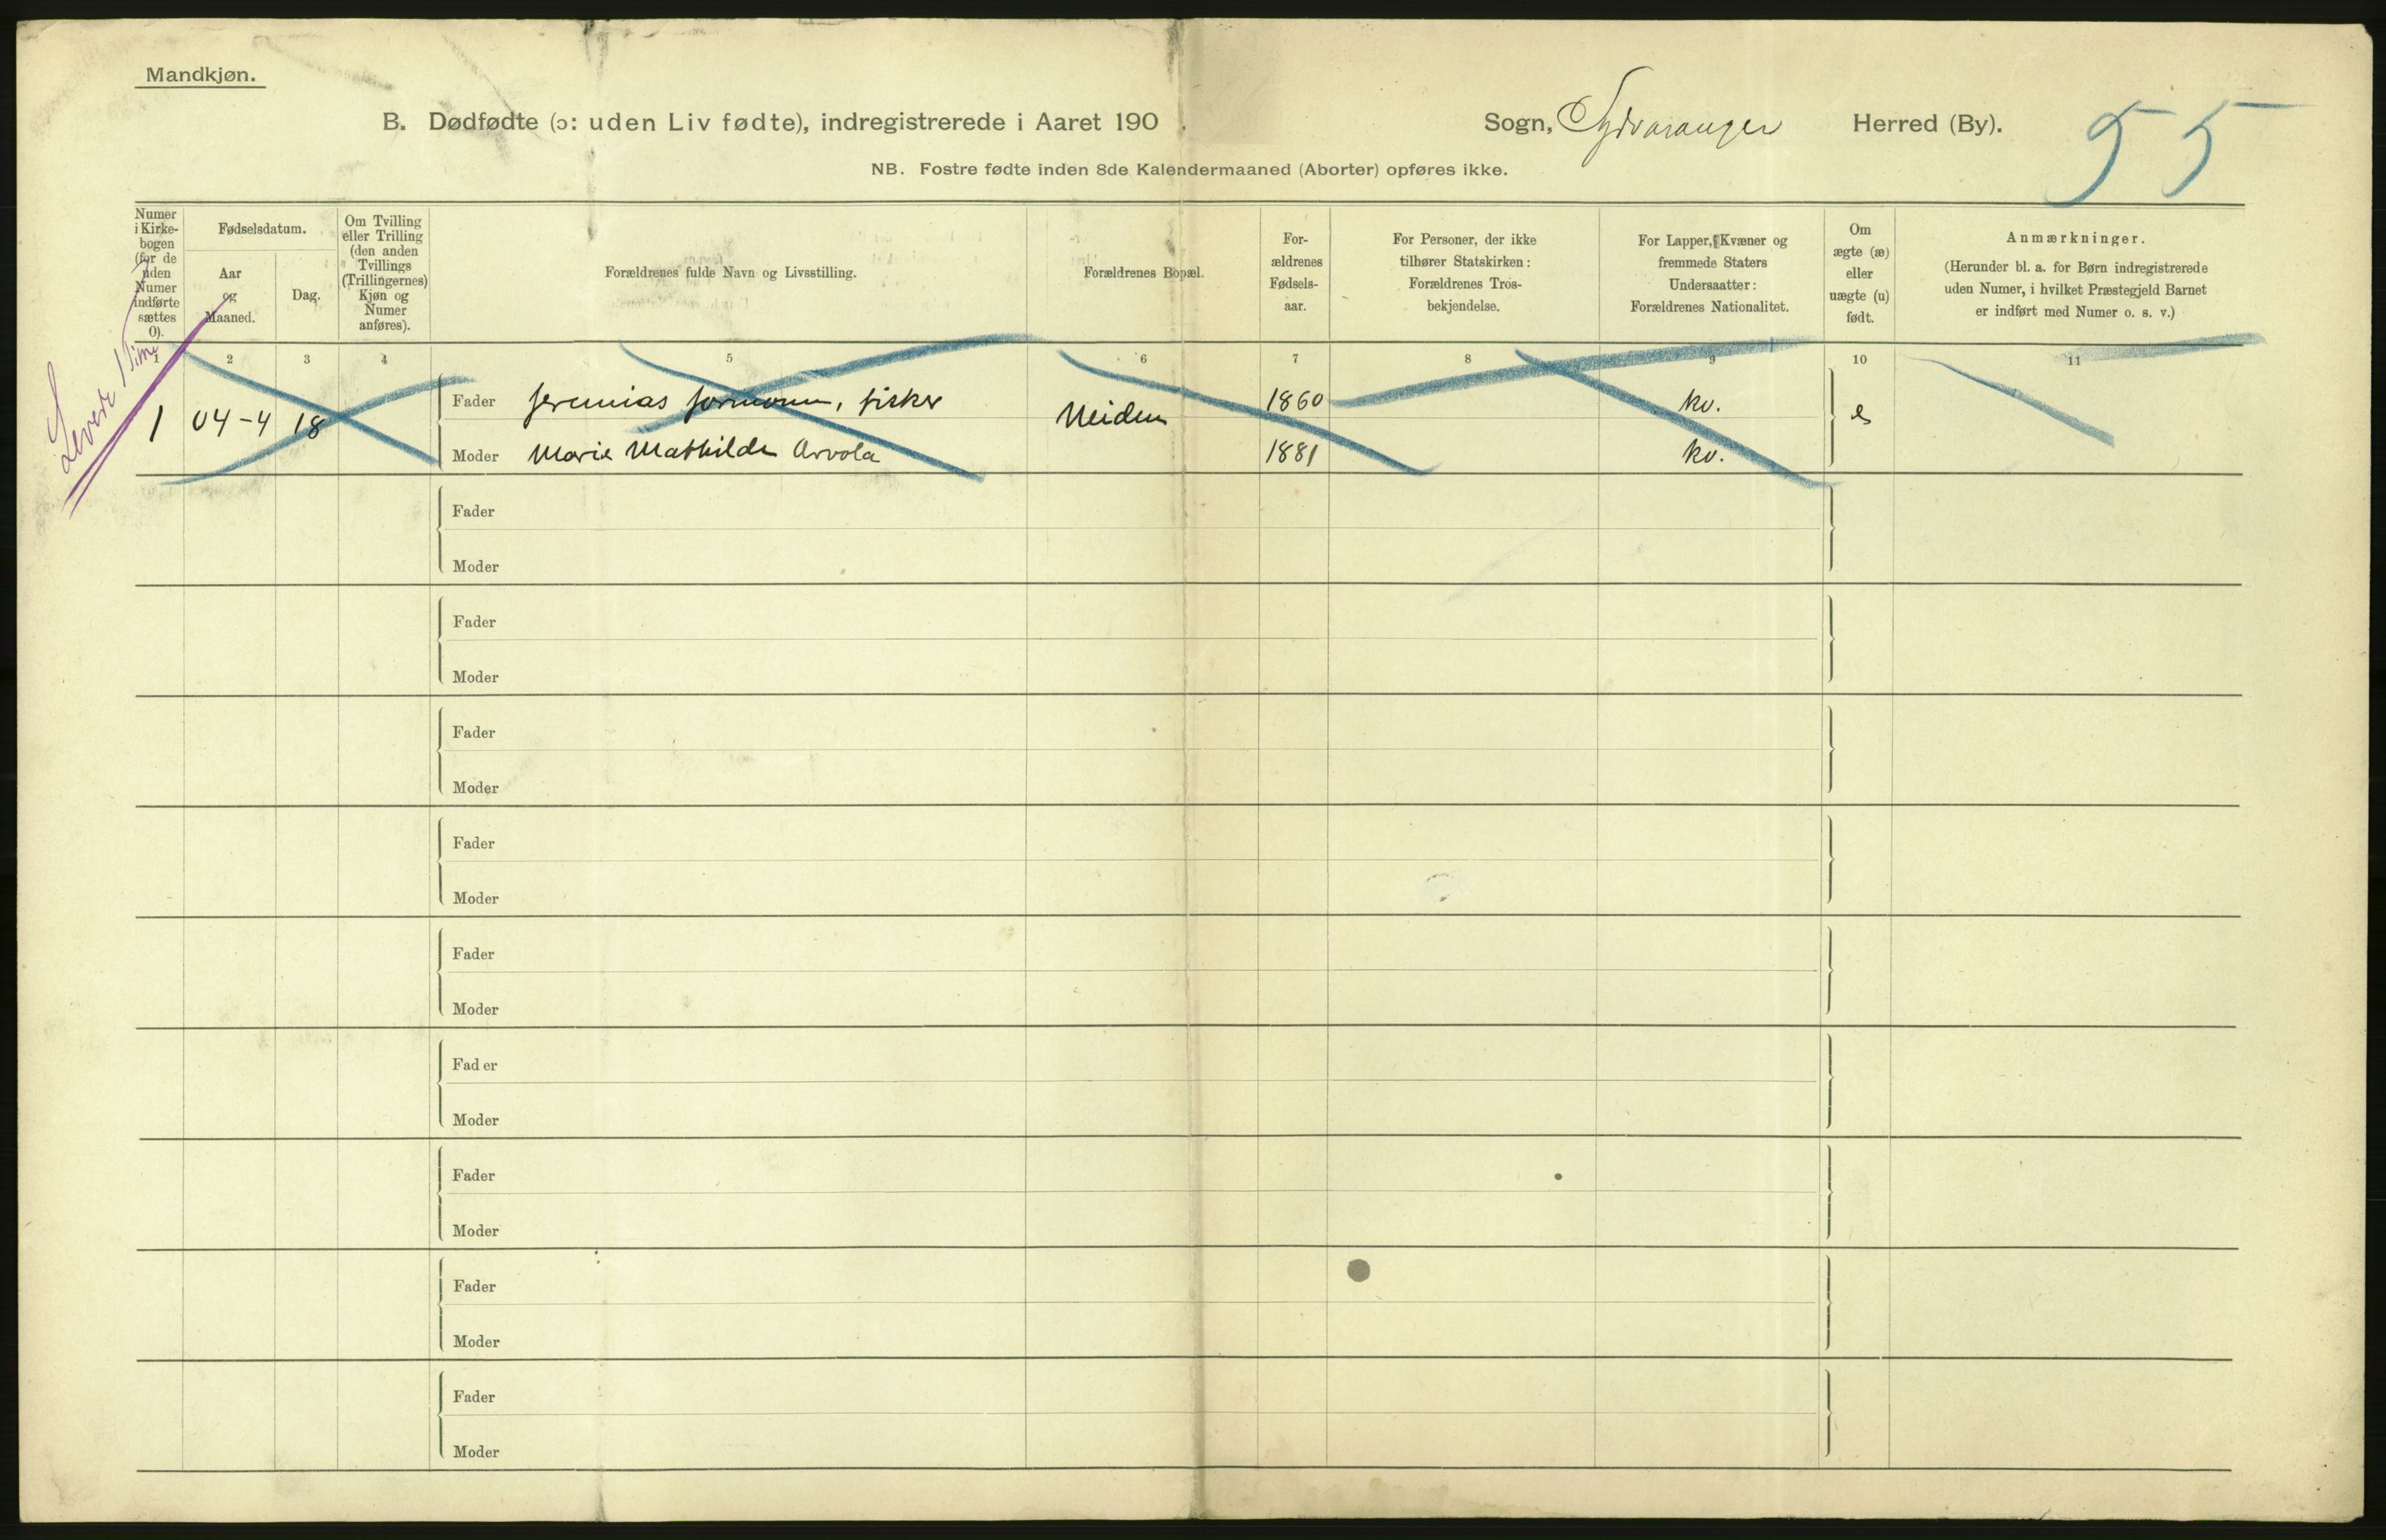 Mandkjøn.
B. Dødfødte (ɔ: uden Liv fødte), indregistrerede i Aaret 190 .
Sogn, Sydvaranger Herred (By).
55
NB. Fostre fødte inden 8de Kalendermaaned (Aborter) opføres ikke.
Numer
i Kirke-
bogen
(for de
uden
Numer
indførte
sættes
0).
Fødselsdatum.
Aar
og
Maaned.
Dag.
Om Tvilling
eller Trilling
(den anden
Tvillings
(Trillingernes)
Kjøn og
Numer
anføres).
Forældrenes fulde Navn og Livsstilling.
Forældrenes Bopæl.
For-
ældrenes
Fødsels-
aar.
For Personer, der ikke
tilhører Statskirken:
Forældrenes Tros-
bekjendelse.
For Lapper, Kvæner og
fremmede Staters
Undersaatter:
Forældrenes Nationalitet.
Om
ægte (æ)
eller
uægte (u)
født.
Anmærkninger.
(Herunder bl. a. for Børn indregistrerede
uden Numer, i hvilket Præstegjeld Barnet
er indført med Numer o. s. v.)
1 2 3 4 5 6 7 8 9 10 11
Levede 1 Time
1 04-4 18 Fader Jeremias, fisker Neiden 1860 kv. e
Moder Marie Mathilde Arvola 1881 kv.
Fader
Moder
Fader
Moder
Fader
Moder
Fader
Moder
Fader
Moder
Fader
Moder
Fader
Moder
Fader
Moder
Fader
Moder